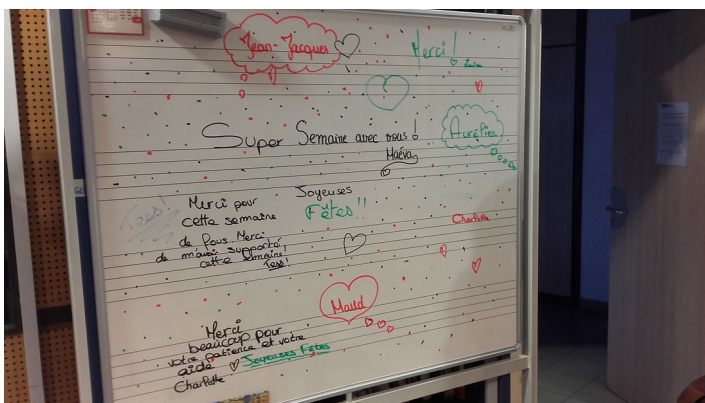 Jean-Jacques
Merci !
Super Semaine avec vous !
Maéva
Aurélien
Tess!
Merci pour
cette semaine
de fous. Merci
de m'avoir supporté
cette semaine!
Tess!
Joyeuses
Fêtes!!
Charlotte
Maud
Merci
beaucoup pour
votre patience et votre
aide ♡ Joyeuses Fêtes
Charlotte